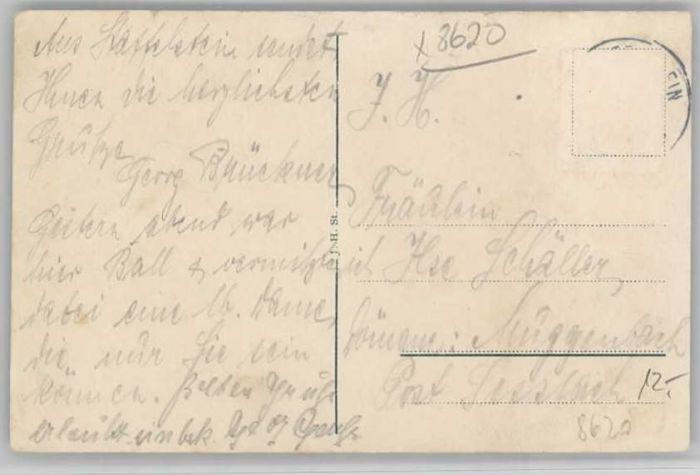 Aus Staffelstein sendet
Ihnen die herzlichsten
Grüße
Georg Brückner
Gestern abend war
hier Ball & vermißte ich
dabei eine lb. Dame,
die nur Sie sein
können. Besten Gruß
erlaubt unbek.
x 8620
EIN
J. H.
Fräulein
Ilse Schäller,
Domäne: Muggenbach
Post Sesslach
12,-
8620
J. H. St.